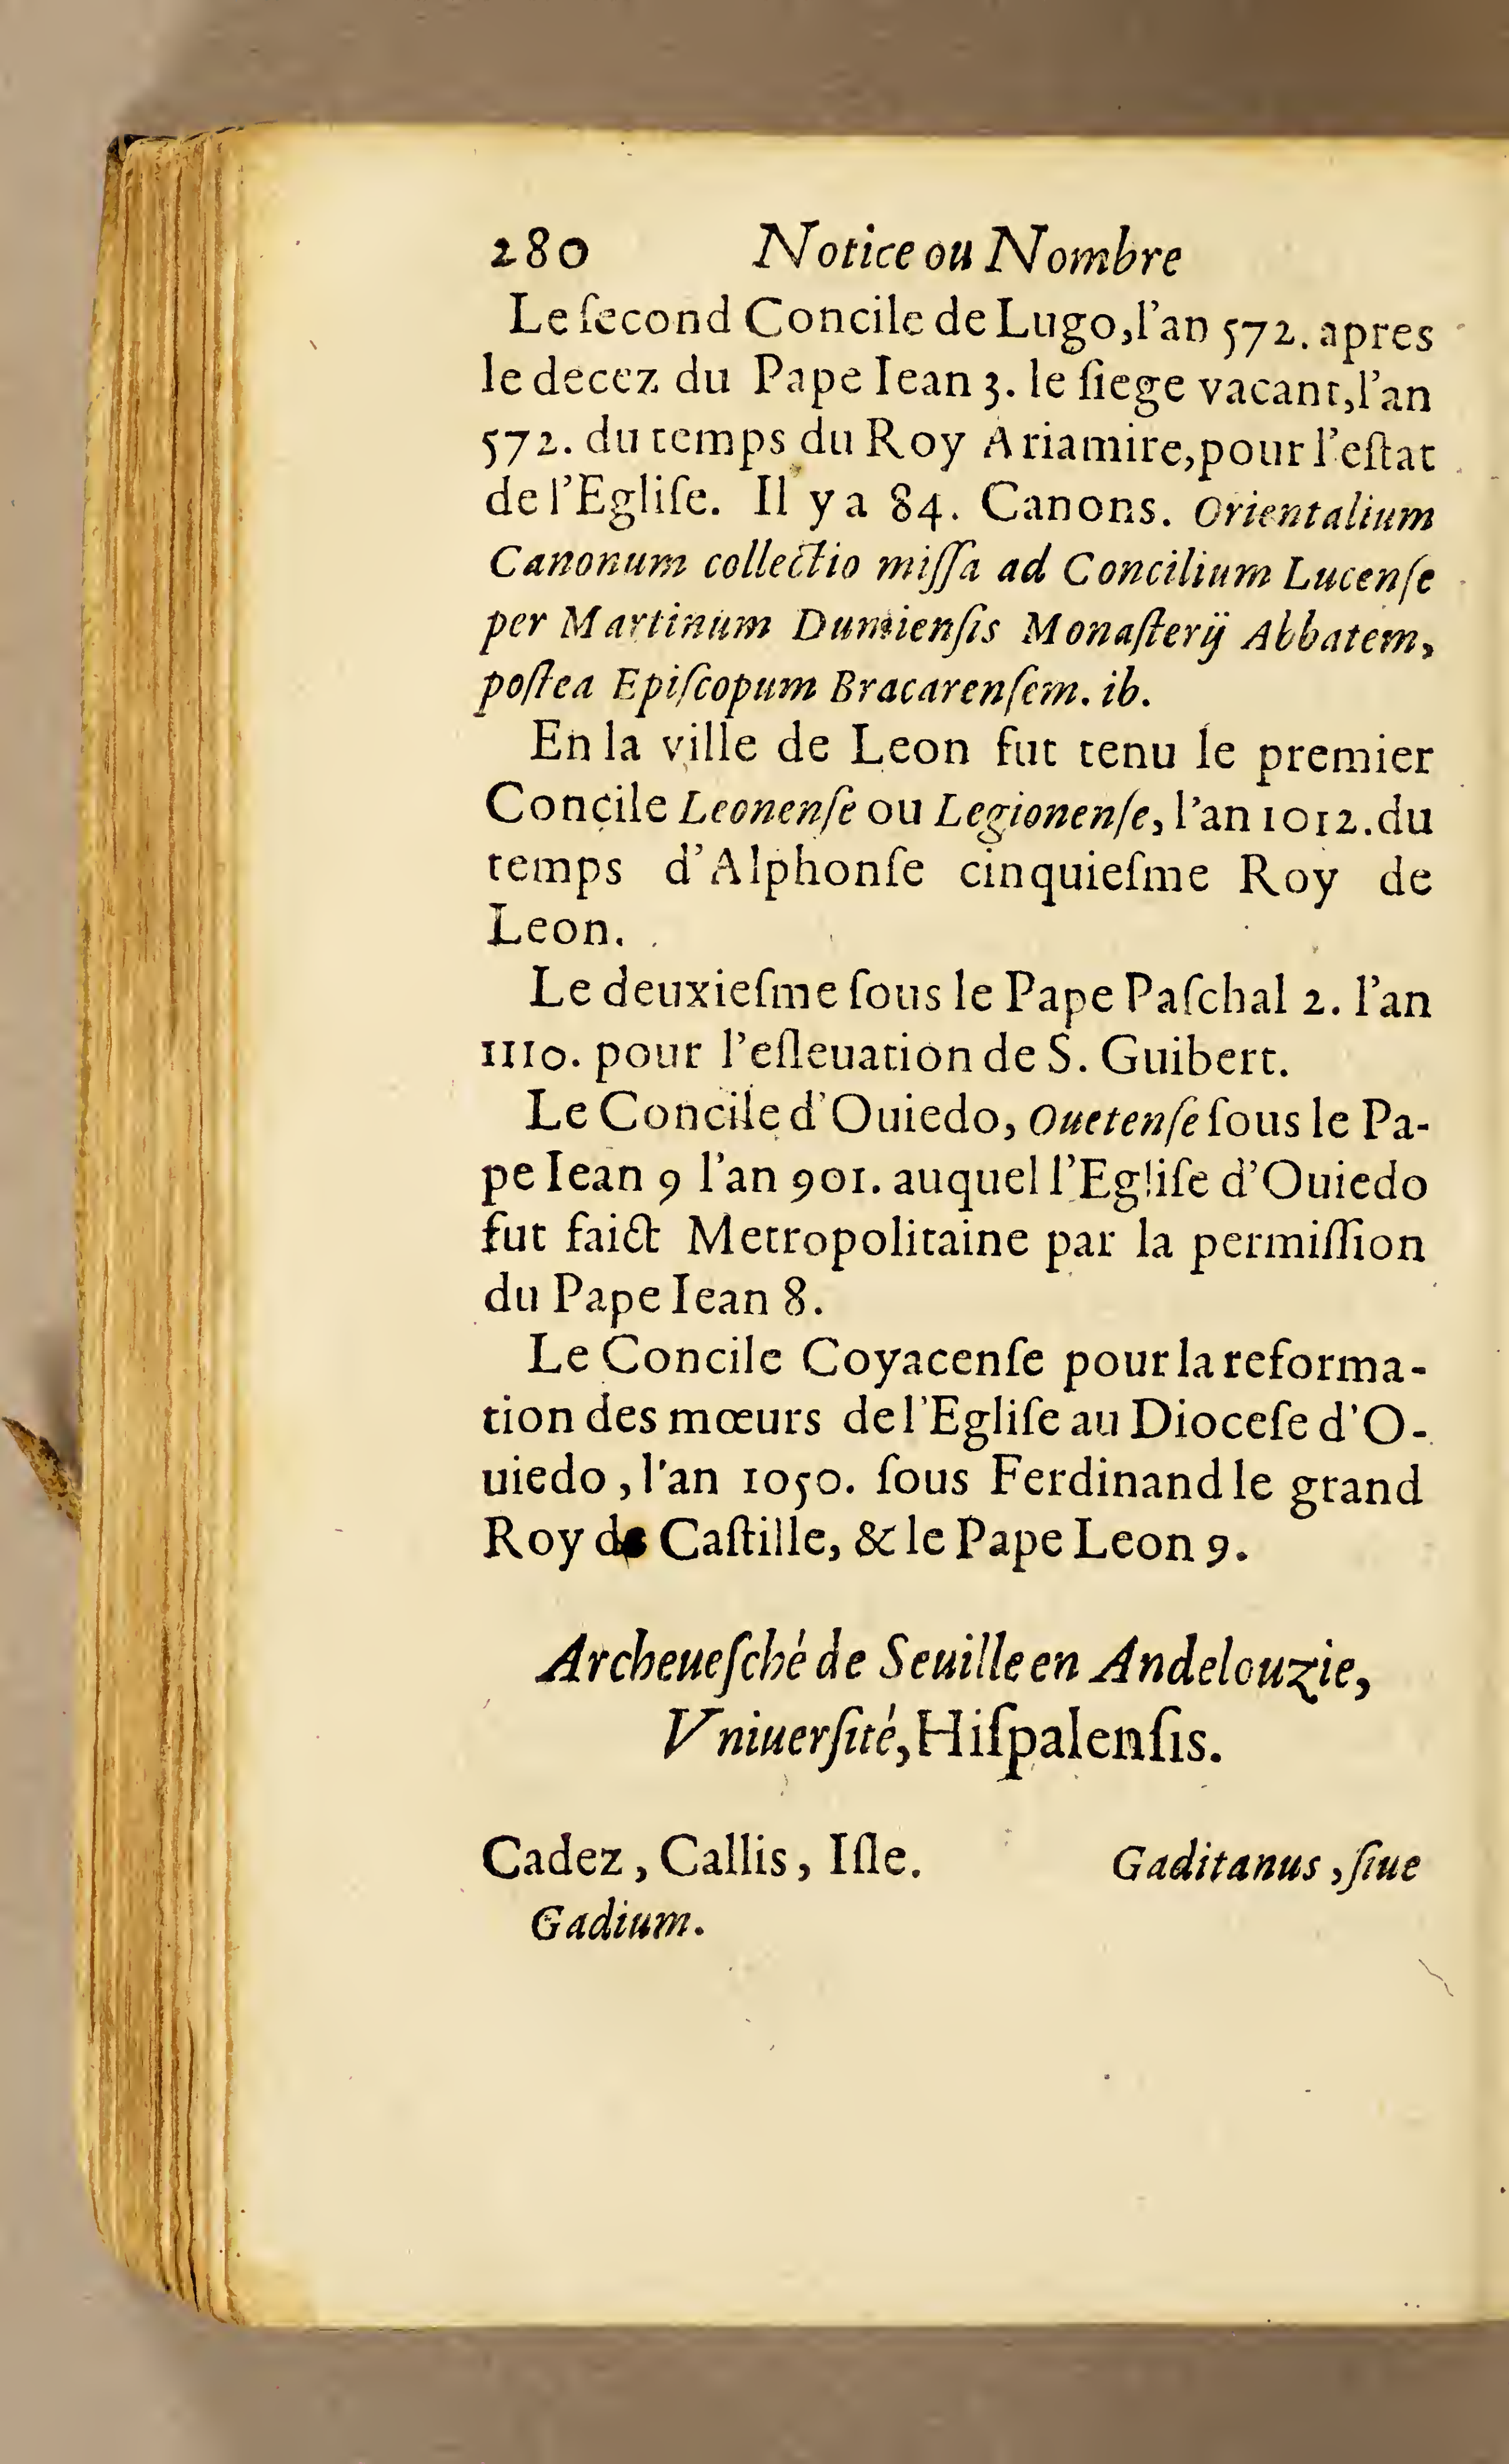 280 Notice ou Nombre
Le ſecond Concile de Lugo, l'an 572. apres
le decez du Pape Iean 3. le ſiege vacant, l'an
572. du temps du Roy Ariamire, pour l'eſtat
de l'Egliſe. Il y a 84. Canons. Orientalium
Canonum collectio miſſa ad Concilium Lucenſe
per Martinum Dumienſis Monaſterij Abbatem,
poſtea Epiſcopum Bracarenſem. ib.
En la ville de Leon fut tenu le premier
Concile Leonenſe ou Legionenſe, l'an 1012. du
temps d'Alphonſe cinquieſme Roy de
Leon.
Le deuxieſme ſous le Pape Paſchal 2. l'an
1110. pour l'eſleuation de S. Guibert.
Le Concile d'Ouiedo, Ouetenſe ſous le Pa-
pe Iean 9 l'an 901. auquel l'Egliſe d'Ouiedo
fut faict Metropolitaine par la permiſſion
du Pape Iean 8.
Le Concile Coyacenſe pour la reforma-
tion des mœurs de l'Egliſe au Dioceſe d'O-
uiedo, l'an 1050. ſous Ferdinand le grand
Roy de Caſtille, & le Pape Leon 9.
Archeueſché de Seuille en Andelouzie,
Vniuerſité, Hiſpalenſis.
Cadez, Callis, Iſle. Gaditanus, ſiue
Gadium.